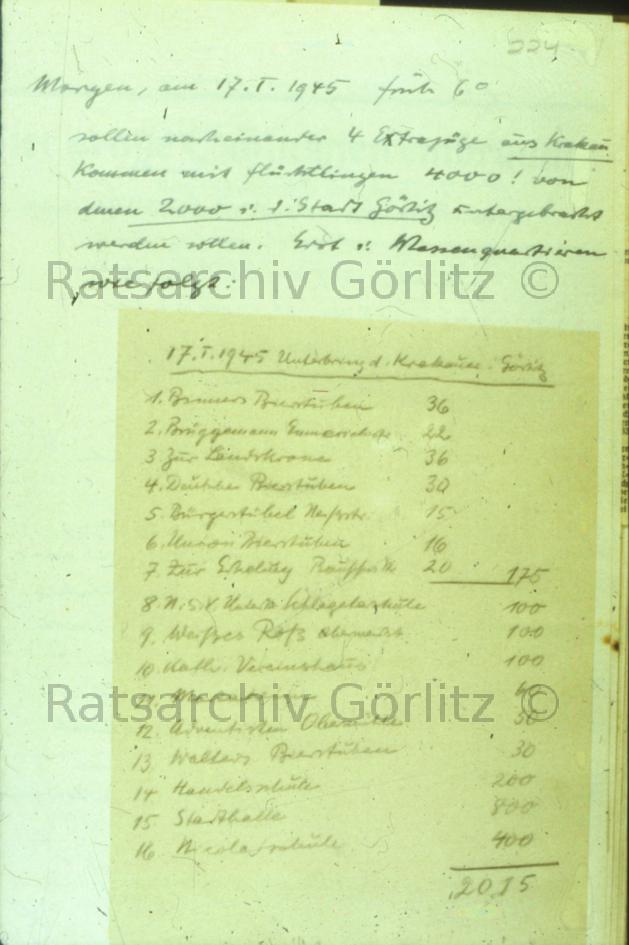 224
Morgen, am 17. I. 1945 früh 6°
sollen nacheinander 4 Extrazüge aus Krakau
kommen mit Flüchtlingen 4000! von
denen 2000 i. d. Stadt Görlitz untergebracht
werden sollen. Erst i. Massenquartieren
wie folgt:
Ratsarchiv Görlitz ©
17. I. 1945 Unterbring d. Krakauer Görlitz
1. Bierstuben 36
2. Brüggemann 22
3 Zur Landskrone 36
4. Deutsche Bierstuben 30
5. Bürgerstübel Neißstr. 15
6. Union Bierstuben 16
7. Zur Erholung 20 175
8. N.S.V. Schlageterschule 100
9. Weißes Roß Obermarkt 100
10 Kath. Vereinshaus 100
11
Ratsarchiv Görlitz ©
12. Adventisten 50
13 Walters Bierstuben 30
14 Handelsschule 200
15 Stadthalle 800
16 Nicolaischule 400
2015